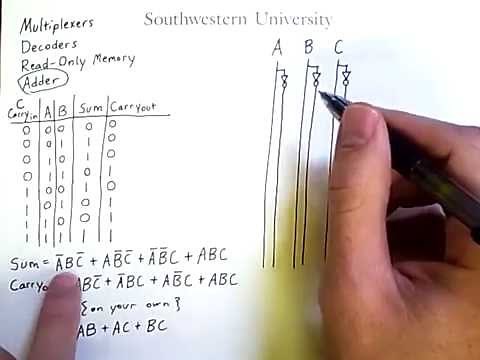 Southwestern University
Multiplexers
Decoders
Read-Only Memory
Adder
C
Carry in A B Sum Carry out
0 0 0 0 0
0 0 1 1 0
0 1 0 1 0
0 1 1 0 1
1 0 0 1 0
1 0 1 0 1
1 1 0 0 1
1 1 1 1 1
Sum = A̅BC̅ + AB̅C̅ + A̅B̅C + ABC
ABC̅ + A̅BC + AB̅C + ABC
{on your own}
AB + AC + BC
A B C